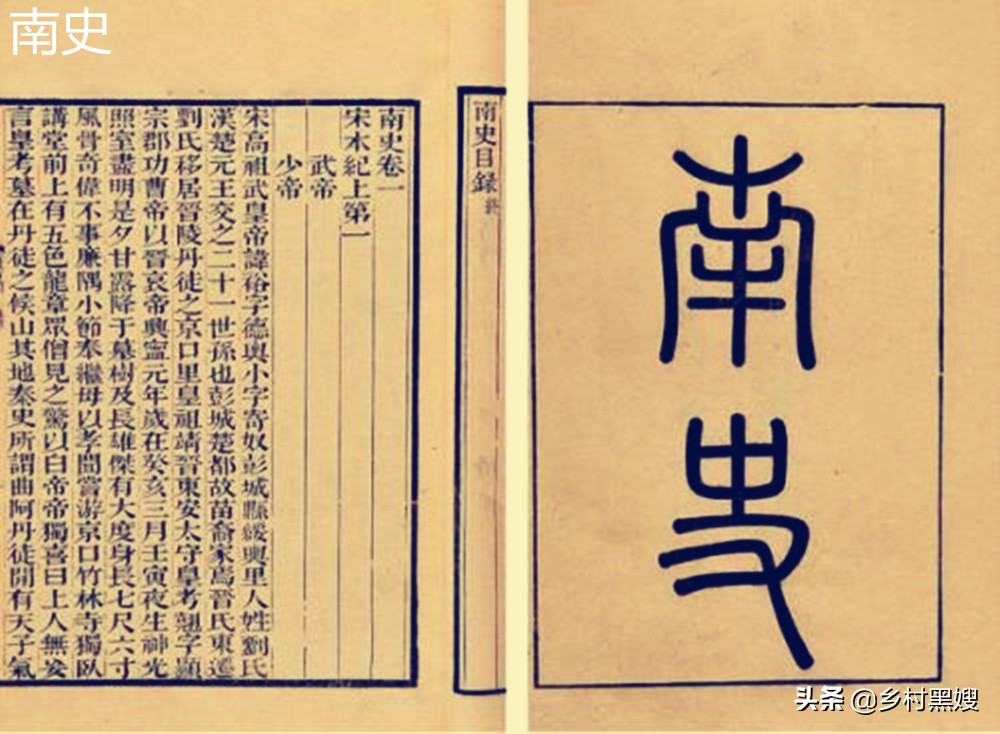 南史
南史
南史目録
南史卷一
宋本紀上第一
武帝
少帝
宋高祖武皇帝諱裕字德輿小字寄奴彭城縣綏輿里人姓劉氏
漢楚元王交之二十一世孫也彭城楚都故苗裔家焉晉氏東遷
劉氏移居晉陵丹徒之京口里皇祖靖晉東安太守皇考翹字顯
宗郡功曹帝以晉哀帝興寧元年歲在癸亥三月壬寅夜生神光
照室盡明是夕甘露降于墓樹及長雄傑有大度身長七尺六寸
風骨奇偉不事廉隅小節奉繼母以孝聞嘗游京口竹林寺獨臥
講堂前上有五色龍章眾僧見之驚以白帝帝獨喜曰上人無妄
言皇考墓在丹徒之候山其地秦史所謂曲阿丹徒間有天子氣
头条 @乡村黑嫂